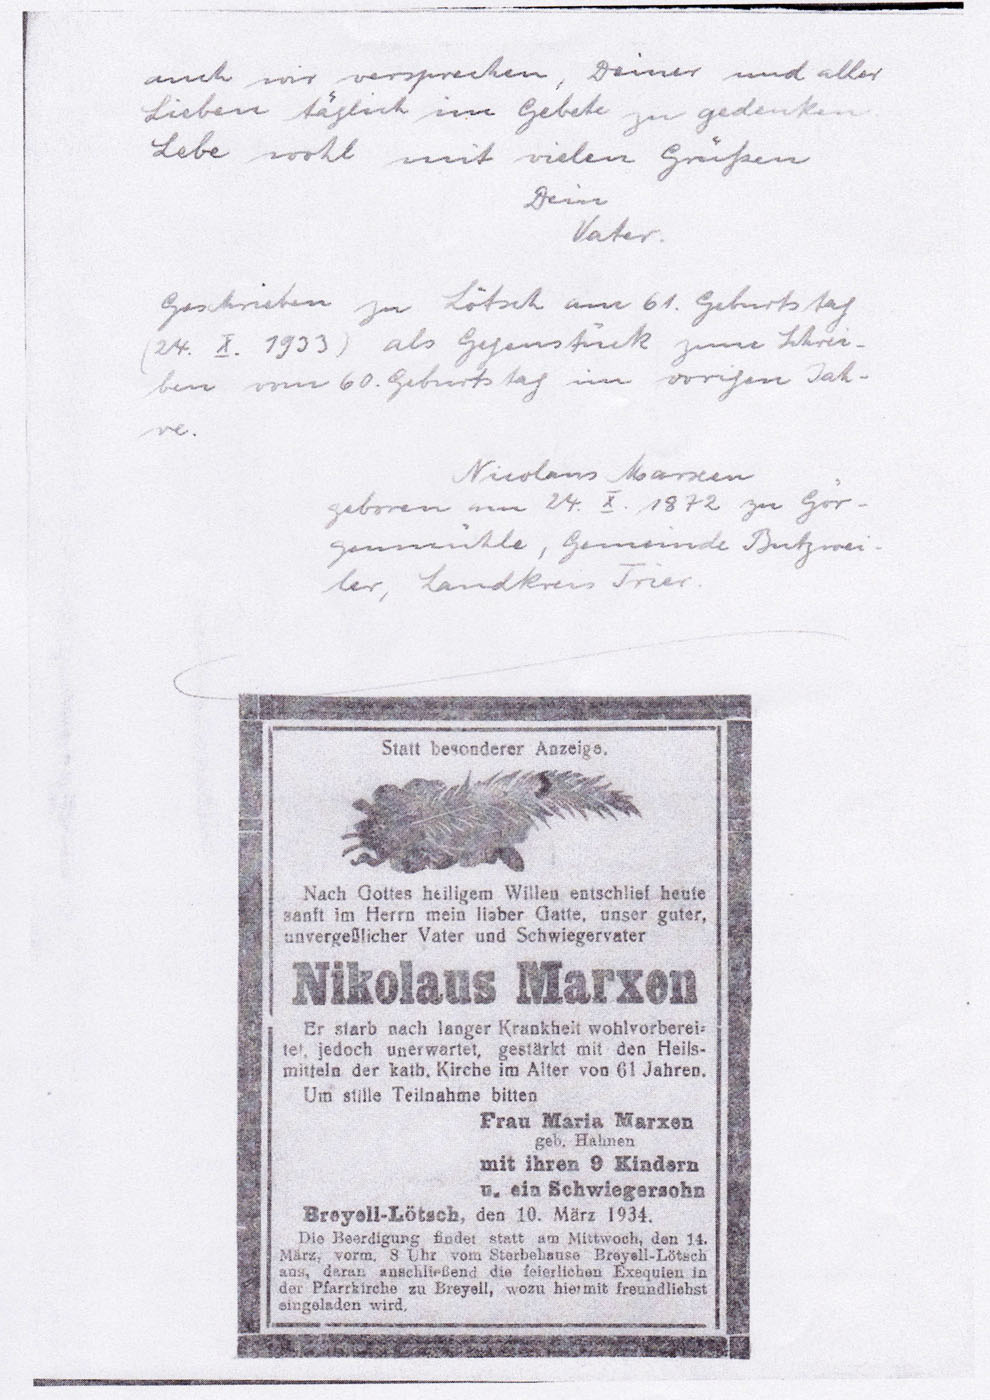 auch wir versprechen, Deiner und aller
Lieben täglich im Gebete zu gedenken.
Lebe wohl mit vielen Grüßen
Dein
Vater.
Geschrieben zu Lötsch am 61. Geburtstag
(24. X. 1933) als Gegenstück zum Schrei-
ben vom 60. Geburtstag im vorigen Jah-
re.
Nicolaus Marxen
geboren am 24. X. 1872 zu Gör-
genmühle, Gemeinde Butzwei-
ler, Landkreis Trier.
Statt besonderer Anzeige.
Nach Gottes heiligem Willen entschlief heute
sanft im Herrn mein lieber Gatte, unser guter,
unvergeßlicher Vater und Schwiegervater
Nikolaus Marxen
Er starb nach langer Krankheit wohlvorberei-
tet, jedoch unerwartet, gestärkt mit den Heils-
mitteln der kath. Kirche im Alter von 61 Jahren.
Um stille Teilnahme bitten
Frau Maria Marxen
geb. Hahnen
mit ihren 9 Kindern
u. ein Schwiegersohn
Breyell-Lötsch, den 10. März 1934.
Die Beerdigung findet statt am Mittwoch, den 14.
März, vorm. 8 Uhr vom Sterbehause Breyell-Lötsch
aus, daran anschließend die feierlichen Exequien in
der Pfarrkirche zu Breyell, wozu hiermit freundlichst
eingeladen wird.